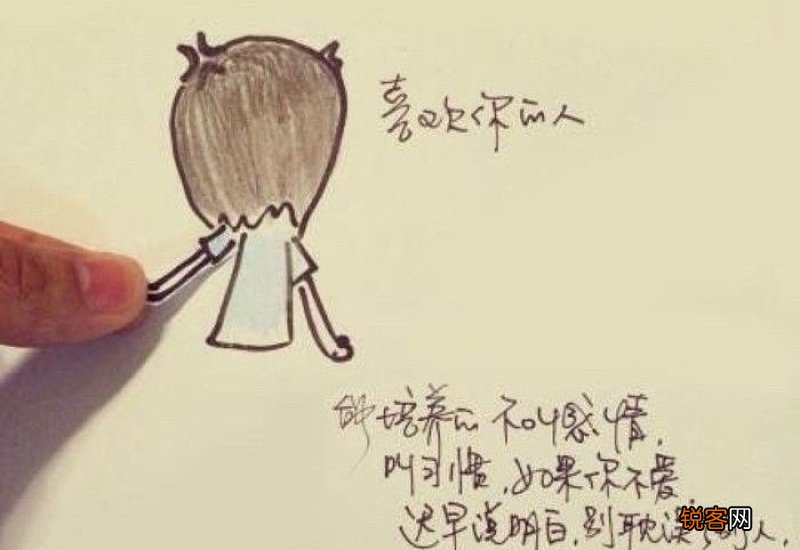 喜欢你的人
能培养的不叫感情,
叫习惯,如果你不爱,
迟早说明白,别耽误人,
锐客网